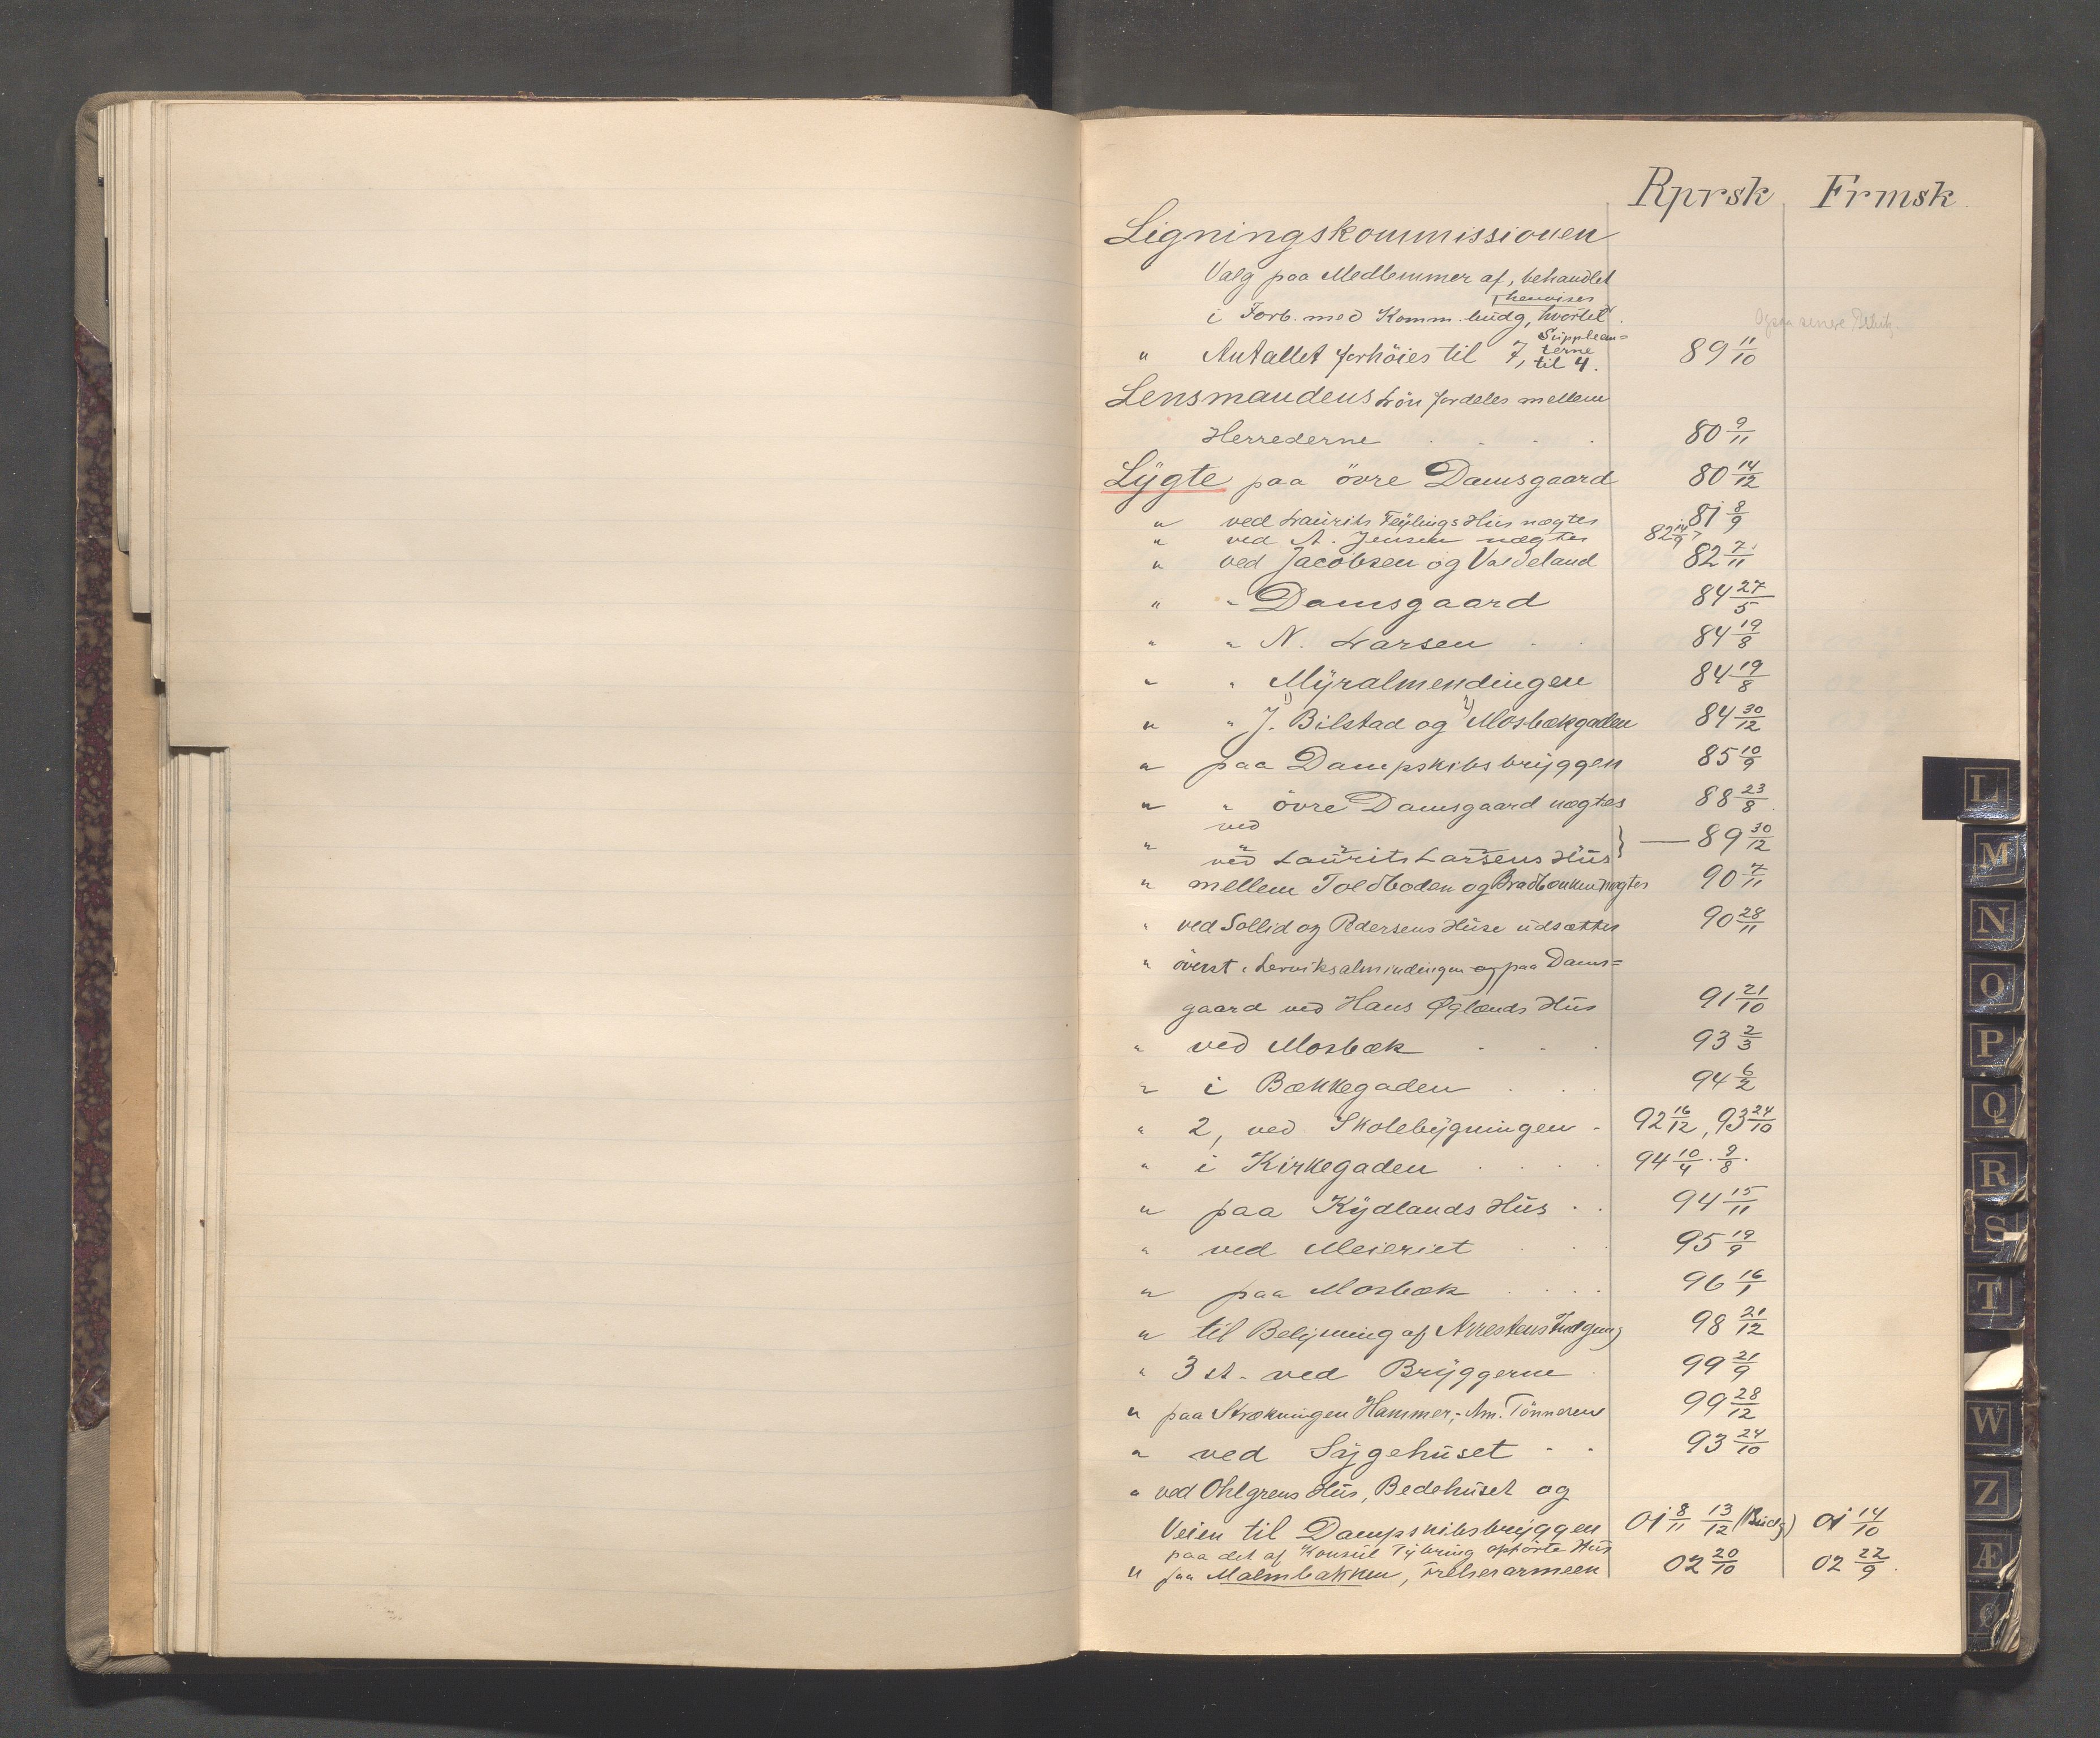 Rprsk Frmsk
Ligningskommissionen
Valg paa Medlemmer af, behandlet
henvises
i Forb. med Komm. budg, hvortil
Ogsaa senere
Supplean=
" Antallet forhöies til 7, terne 89 11/10
til 4.
Lensmandens Lön fordeles mellem
Herrederne . . . . 80 9/11
Lygte paa övre Damsgaard 80 14/12
" ved Laurits Feylings Hus nægtes 81 8/9
" ved A. Jensen nægtes 82 14/9
" ved Jacobsen og Vaadeland 82 7/11
" " Damsgaard 84 27/5
" " N. Larsen . . 84 19/8
" " Myralmendingen 84 19/8
" " 1) J. Bilstad og 2) Mosbækgaden 84 30/12
" paa Dampskibsbryggen 85 10/9
" " övre Damsgaard nægtes 88 23/8
ved
" ved Laurits Larsens Hus } — 89 30/12
" mellem Toldboden og Bradbenken nægtes 90 7/11
" ved Sollid og Pedersens Huse udsættes 90 28/11
" överst i Lerviksalmindingen og paa Dams=
gaard ved Hans Øglænds Hus 91 21/10
" ved Mosbæk . . . 93 2/3
" i Bækkegaden . . 94 6/2
" 2, ved Skolebygningen . 92 16/12, 93 24/10
" i Kirkegaden . . . . 94 10/4 . 9/8 .
" paa Kydlands Hus . . 94 15/11
" ved Meieriet . . 95 19/9
" paa Mosbæk . . . . 96 16/1
" til Belysning af Arrestens Indgang 98 21/12
" 3 st. ved Bryggerne . 99 21/9
" paa Strækningen Hammer,- Am. Tönnesens 99 28/12
" ved Sygehuset . . 93 24/10
" ved Ohlgrens Hus, Bedehuset og
Veien til Dampskibsbryggen 01 8/11 13/12 (Budg) 01 14/10
paa det af Konsul Tybring opförte Hus
" paa Malmbakken, frelsesarmeen 02 20/10 02 22/9 .
L
M
N
O
P
Q
R
S
T
W
Z
Æ
Ø